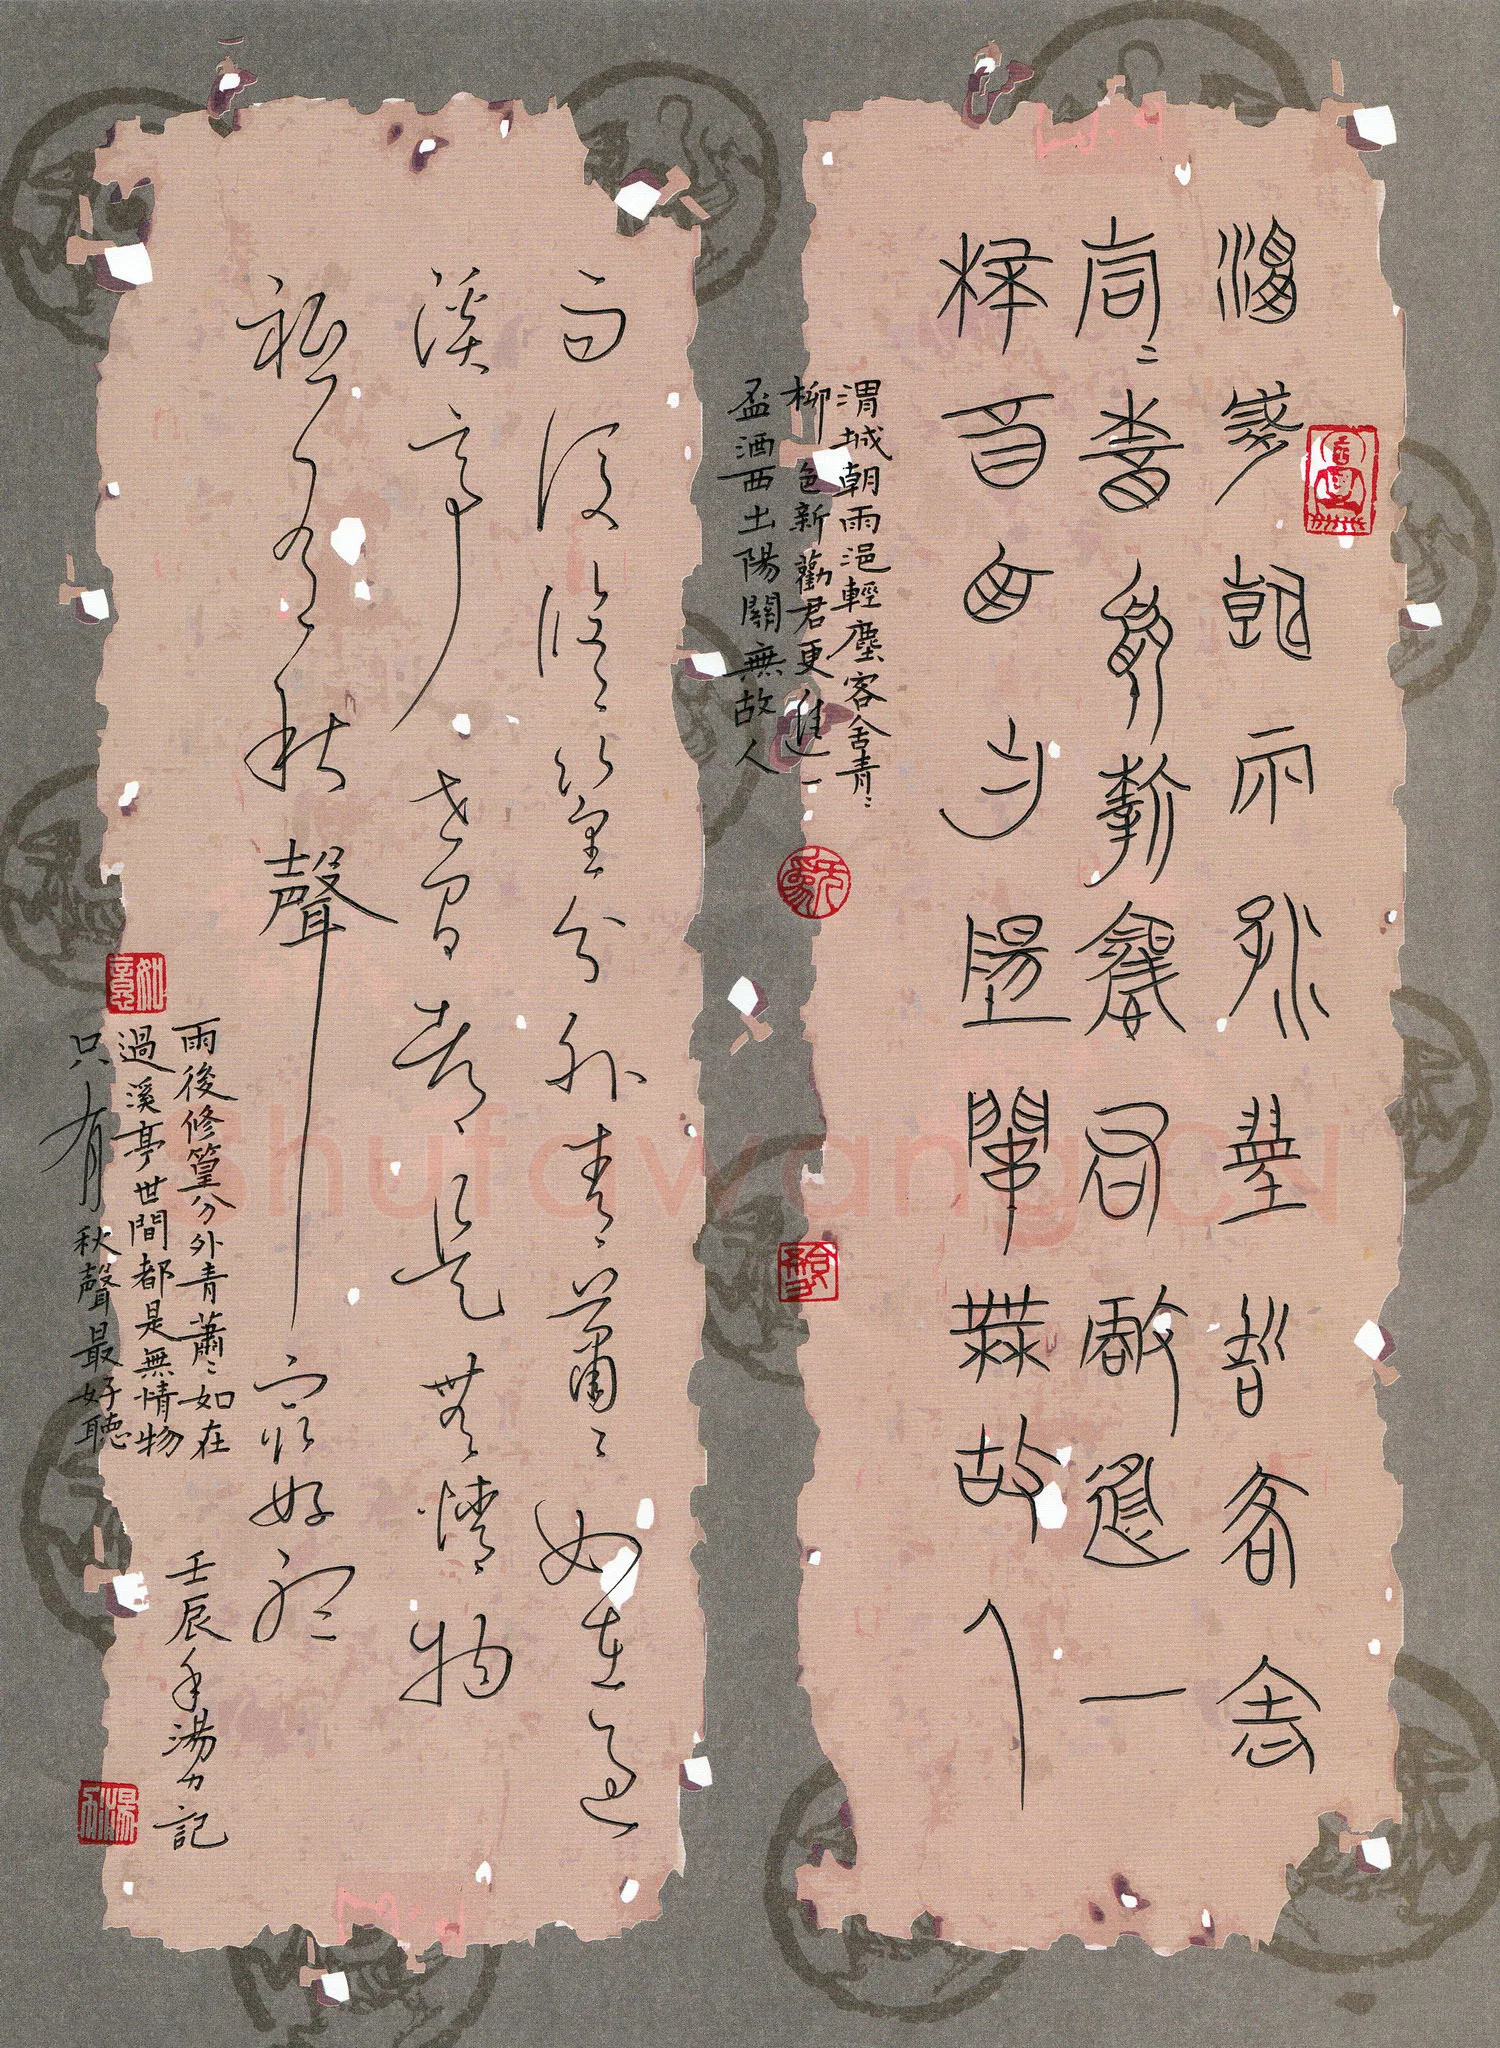 渭城朝雨浥輕塵客舍
青〻柳色新勸君更進一
杯酒西出陽關無故人
渭城朝雨浥輕塵客舍青〻
柳色新勸君更進一
盃酒西出陽關無故人
雨後修篁分外青蕭〻如在過
溪亭世間都是無情物
祗有秋聲最好聽
雨後修篁分外青蕭〻如在
過溪亭世間都是無情物
只有秋聲最好聽
壬辰年湯力記
ShufawangCN